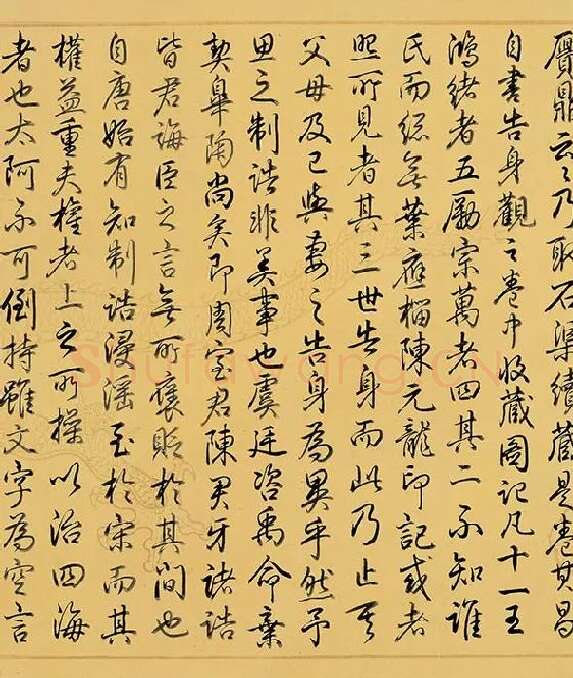 贗鼎云〻乃取石渠續藏是卷其昌
自書告身觀之卷中收藏圖記凡十一王
鴻緒者五勵宗萬者四其二不知誰
氏而總無葉應榴陳元龍印記或者
照所見者其三世告身而此乃止其
父母及己與妻之告身為異乎然予
思之制誥非美事也虞廷咨禹命棄
契臯陶尚矣即周室君陳君牙諸誥
皆君誨臣之言無所褒貶於其間也
自唐始有知制誥浸淫至於宋而其
權益重夫權者上之所操以治四海
者也太阿不可倒持雖文字為空言
Shufawang.CN